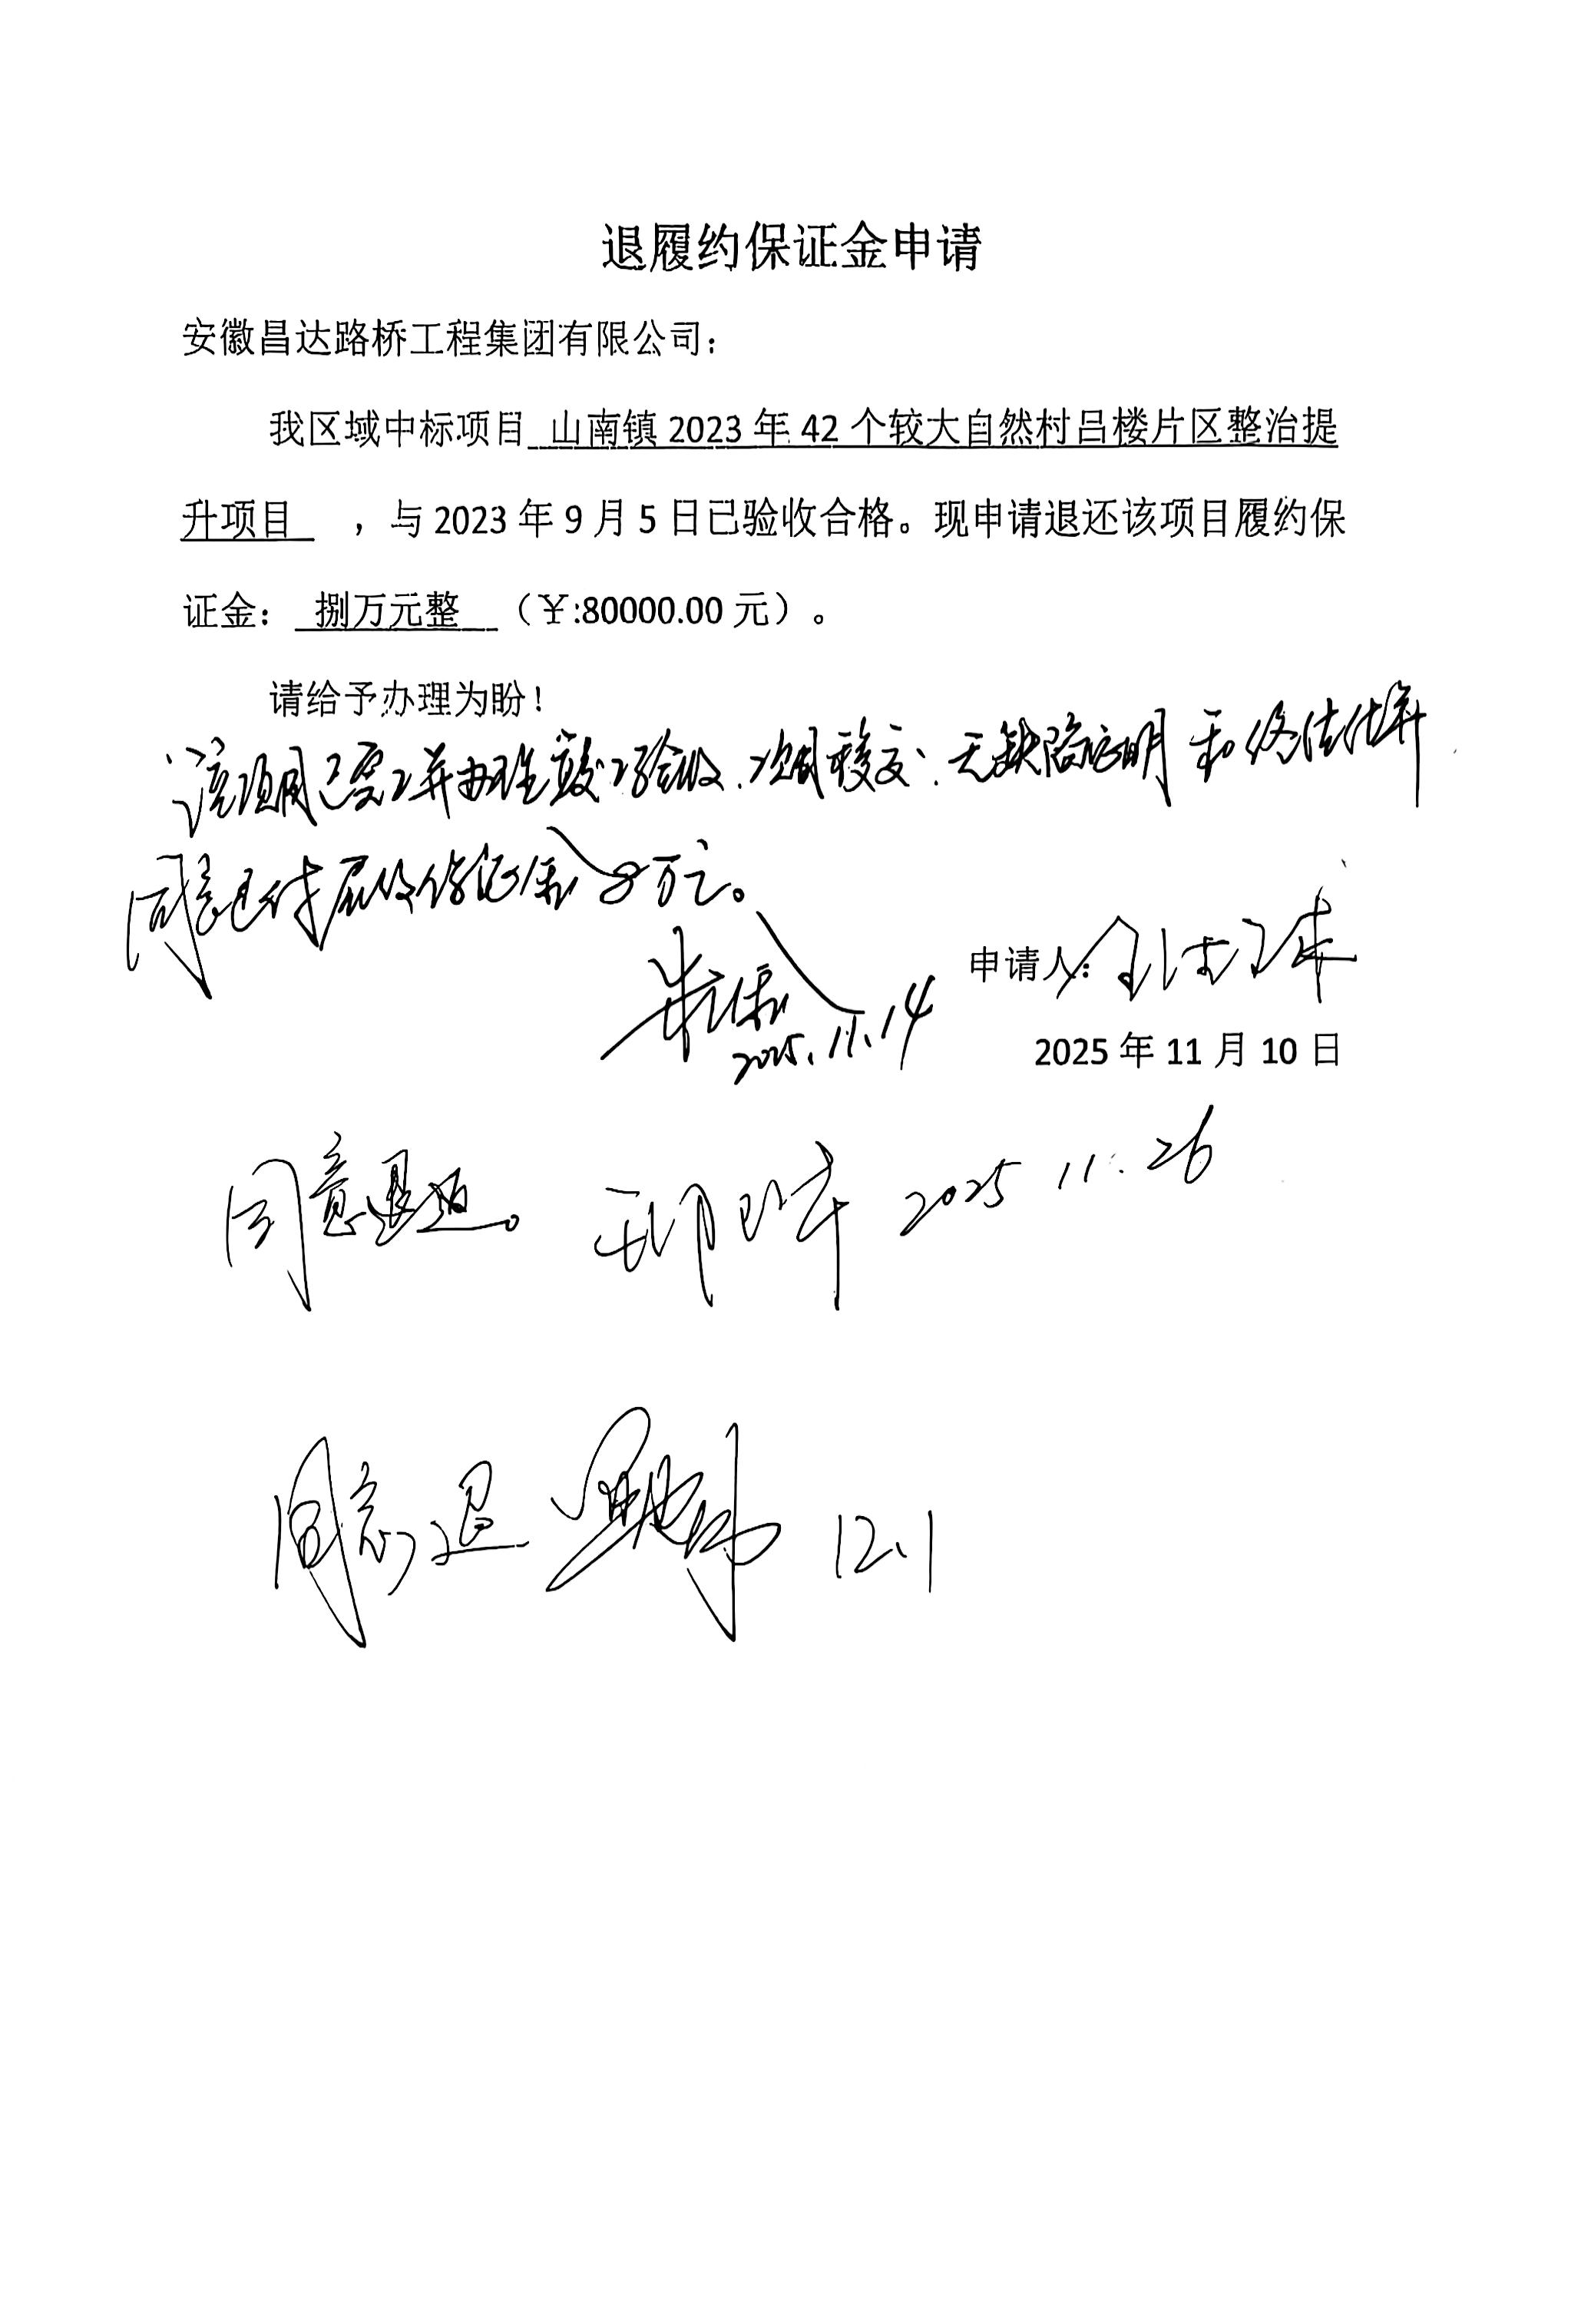 退履约保证金申请
安徽昌达路桥工程集团有限公司：
我区域中标项目 山南镇 2023 年 42 个较大自然村吕楼片区整治提
升项目 ，与 2023 年 9 月 5 日已验收合格。现申请退还该项目履约保
证金： 捌万元整 （￥:80000.00 元）。
请给予办理为盼！
该项目已完工并办理竣工验收、移交、无缺陷证明和
同意退付履约保证金8万元。
申请人：
2025.11.14
2025 年 11 月 10 日
同意退还。 2025 11.26
同意退 12.1